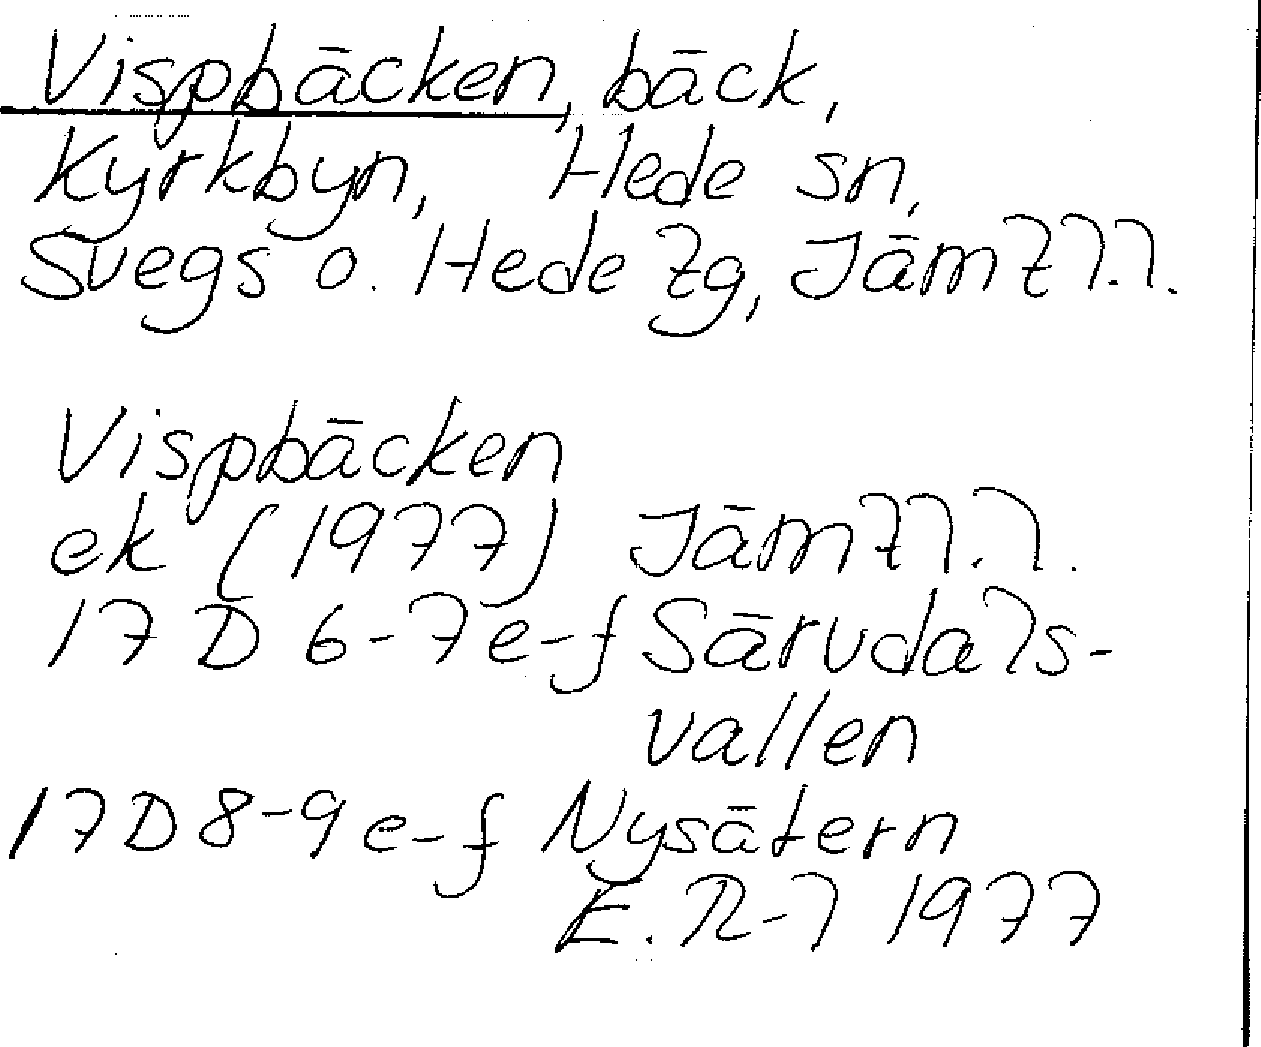 Vispbäcken, bäck,
Kyrkbyn, Hede sn,
Svegs o. Hede tg, Jämtl.l.
Vispbäcken
ek (1977) Jämtl.l.
17D 6-7e-f Särvdals-
vallen
17D8-9e-f Nysätern
E.R-l 1977